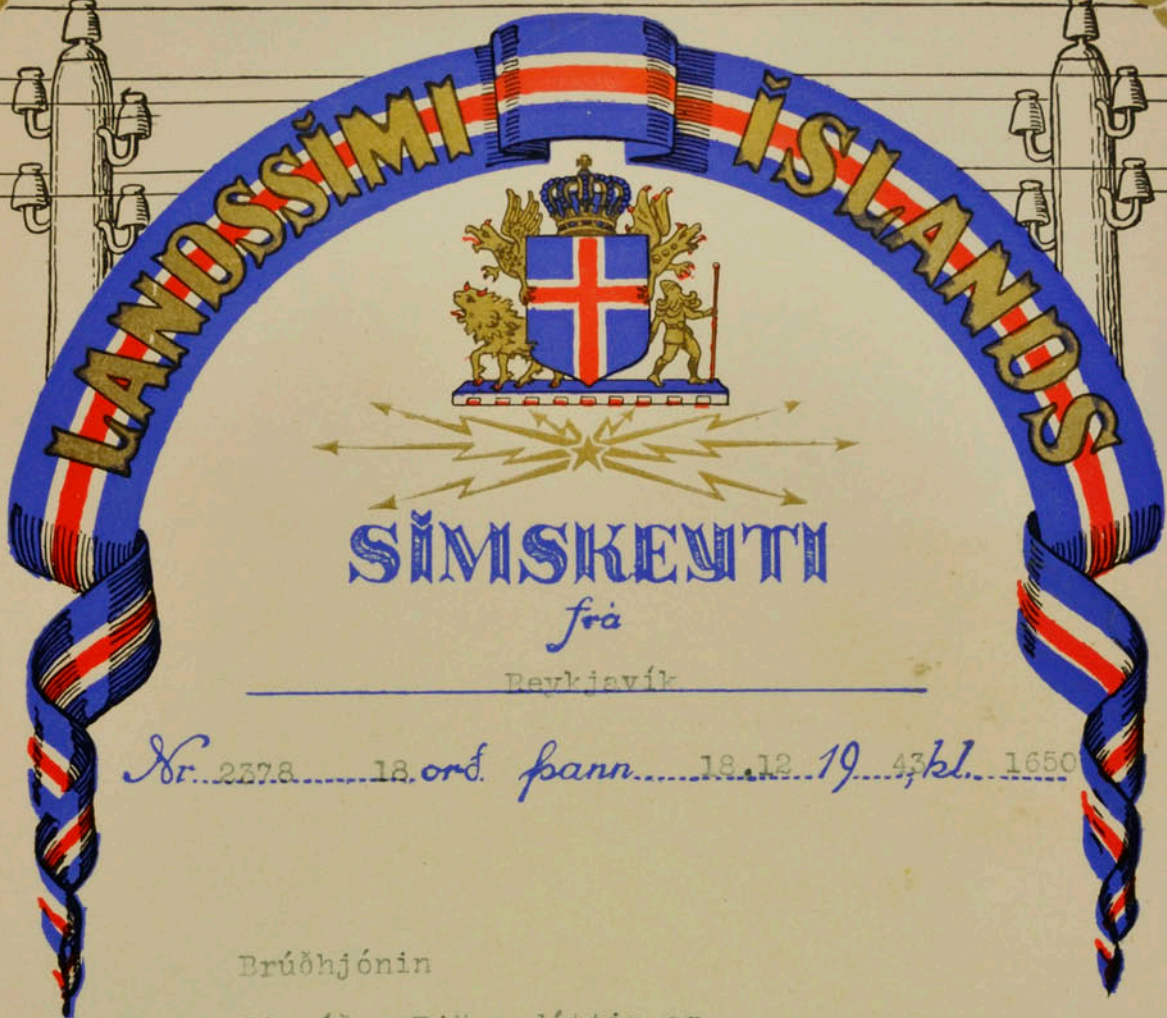 LANDSSÍMI ÍSLANDS
SÍMSKEYTI
frá
Reykjavík
Nr. 2378 18 orð. þann 18.12 19 43, kl. 1650
Brúðhjónin